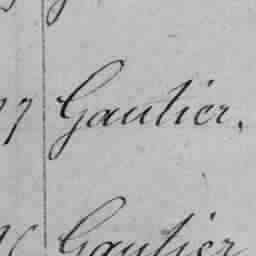 7 Gautier.
Gautier